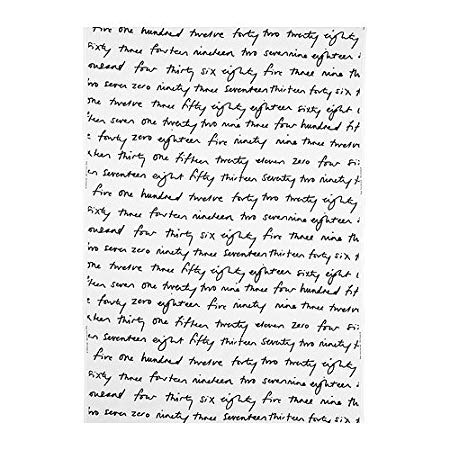 five one hundred twelve forty two twenty eighty
sixty three fourteen nineteen two sevennine eighteen
ousand four thirty six eighty five three nine th
two seven zero ninety three seventeen thirteen forty six
one twelve three fifty eighty eighteen sixty eight
teen seven one twenty two nine three four hundred fif
e forty zero eighteen five ninety nine three
thirty one fifteen twenty eleven zero four six
en seventeen eight fifty thirteen seventy two nine t
five one hundred twelve forty two twenty eighty
sixty three fourteen nineteen two sevennine eighteen
ousand four thirty six eighty five three nine th
two seven zero ninety three seventeen thirteen forty six
one twelve three fifty eighty eighteen sixty eight
teen seven one twenty two nine three four hundred fi
e forty zero eighteen five ninety nine three
thirty one fifteen twenty eleven zero four six
en seventeen eight fifty thirteen seventy two nine t
five one hundred twelve forty two twenty eighty
sixty three fourteen nineteen two sevennine eighteen
ousand four thirty six eighty five three nine th
two seven zero ninety three seventeen thirteen forty six